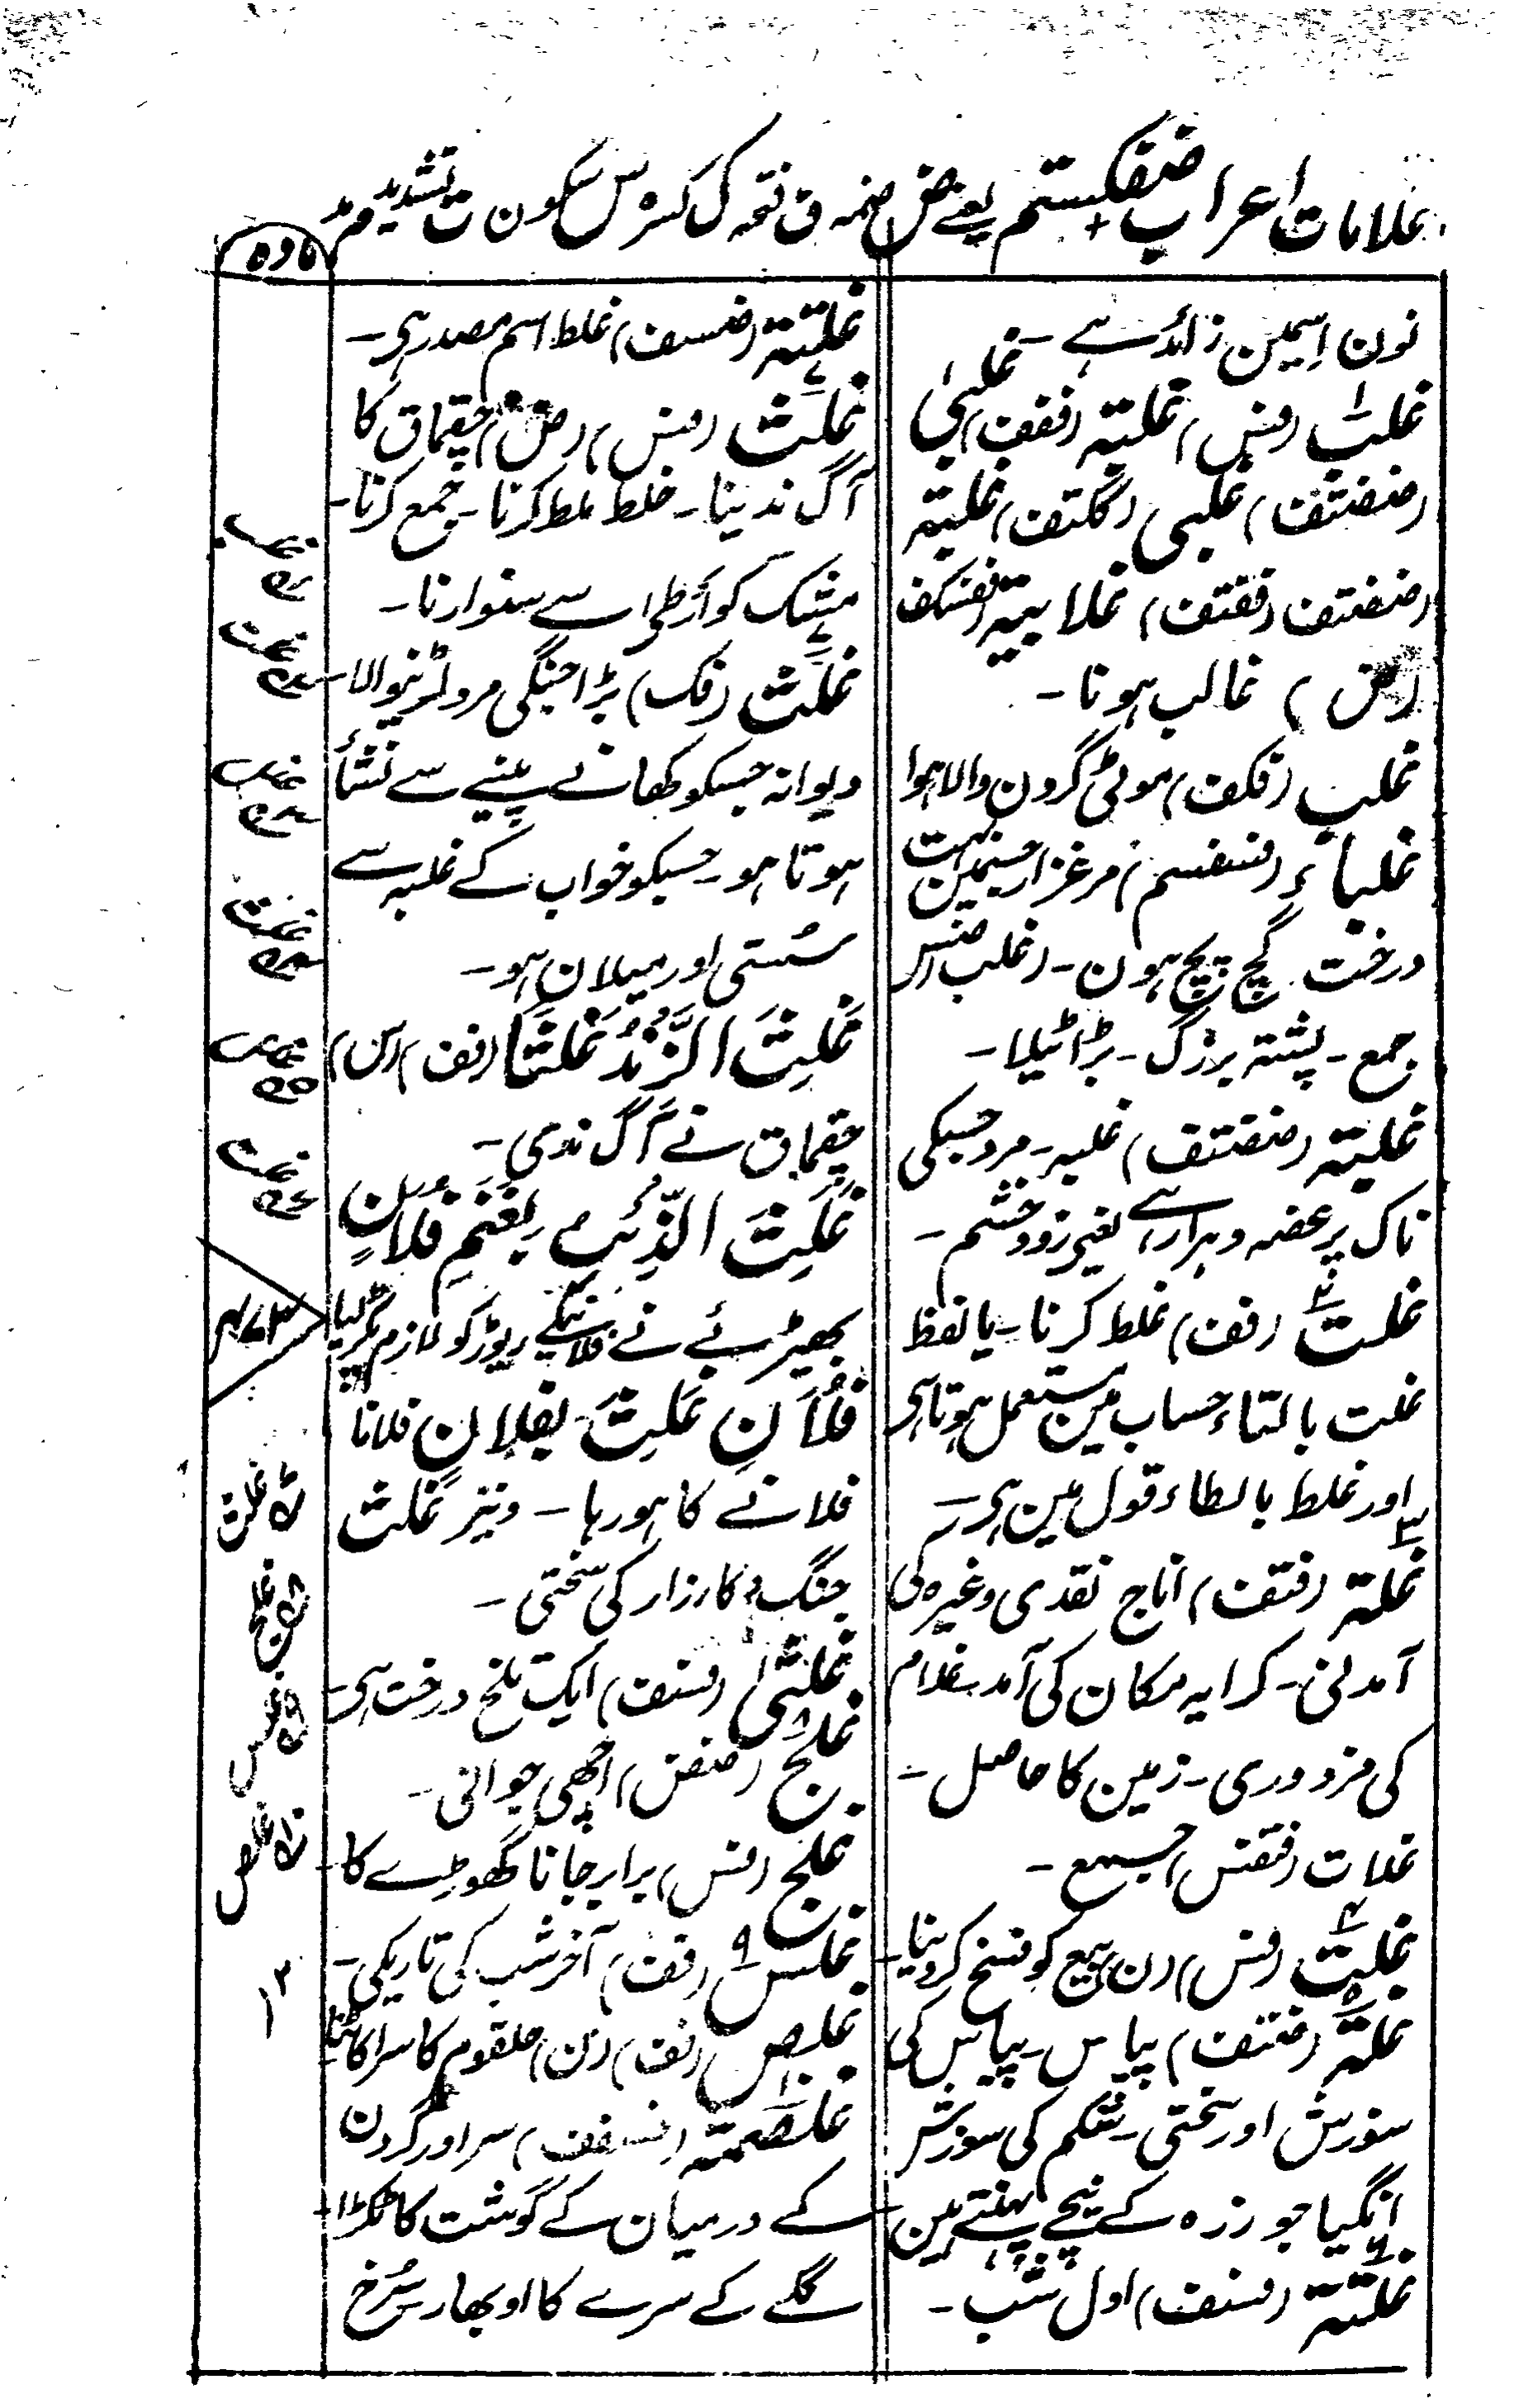 علامات اعراب ضفکستم یعنے ض ضمہ ف فتحہ ک کسرہ س سکون ت تشدید م مد
مادہ
نون اسمین زائد ہے۔
غلب (فس) غلبة (ففف) غلبیٰ
(ضضتف) غلبی (ککتف) غلبة
(ضضتف (ففتف) غلابیة (
(ض) غالب ہونا۔
غلب (فکف) موٹی گردن والا ہوا
غلباء (فسفسم) مرغزار جسمین بہت
درخت گچ پچ ہون۔ (غلب ضس
جمع۔ پشتہ بزرگ۔ بڑا ٹیلا۔
غلبة (ضضتف) غلبہ۔ مرد جسکی
ناک پر غصہ دہرا رہے یعنی زود خشم۔
غلت (فف) غلط کرنا۔ یا لفظ
غلت بالتاء حساب مین مستعمل ہوتا ہی
اور غلط بالطاء قول مین ہی۔
غلة (فتف) اناج نقدی وغیرہ کی
آمدنی۔ کرایہ مکان کی آمد۔ غلام
کی مزدوری۔ زمین کا حاصل۔
غلات (فتفس) جمع۔
غلت (فس) (ن) بیع کو فسخ کردینا۔
غلة (ضتف) پیاس۔ پیاس کی
سوزش اور سختی۔ شکم کی سوزش
انگیا جو زرہ کے نیچے پہنتے ہین
غلتة (فسف) اول شب۔
غلتة (ضسف) غلط اسم مصدر ہی۔
غلث (فس) (ض) چقماق کا
آگ ندینا۔ خلط ملط کرنا۔ جمع کرنا۔
مشک کو ارطی سے سنوارنا۔
غلث (فک) بڑا جنگی مرد لڑنیوالا۔
دیوانہ جسکو کھانے پینے سے نشأ
ہوتا ہو۔ جسکو خواب کے غلبہ سے
سستی اور میلان ہو۔
غَلِثَ الزَّنْدُ غَلَثًا (فف) (س)
چقماق نے آگ ندی۔
غَلِثَ الذِّئْبُ بِغَنَمِ فُلَانٍ
بھیڑئے نے فلانیکے ریوڑ کو لازم پکڑلیا
فُلَانٌ غَلِثَ بِفُلَانٍ فلانا
فلانے کا ہو رہا۔ ونیز غلث
جنگ و کارزار کی سختی۔
غلثی (فسف) ایک تلخ درخت ہی۔
غلج (ضفض) اچھی جوانی۔
غلج (فس) برابر جانا گھوڑے کا۔
غلس (فف) آخر شب کی تاریکی۔
غلص (فف) (ن) حلقوم کا سرا کاٹنا
غلصمة (فسفف) سر اور گردن
کے درمیان کے گوشت کا ٹکڑا۔
گلے کے سرے کا اوبھار۔ سرخ
غلث
غلج
غلس
غلص
۱۳